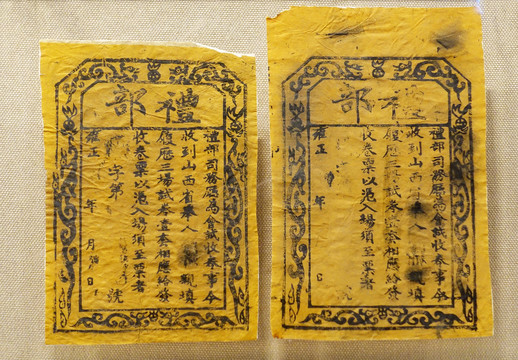 禮部
禮部司務廳為會試收卷事今
收到山西省奉人親填
履歷三場試卷壹叁相應給發
收卷票以凭入場須至票者
字第號
雍正年月日
禮部
禮部司務廳為會試收卷事今
收到山西省人填
履歷三場試卷叁相應給發
收卷票以凭入場須至票者
號
雍正年日